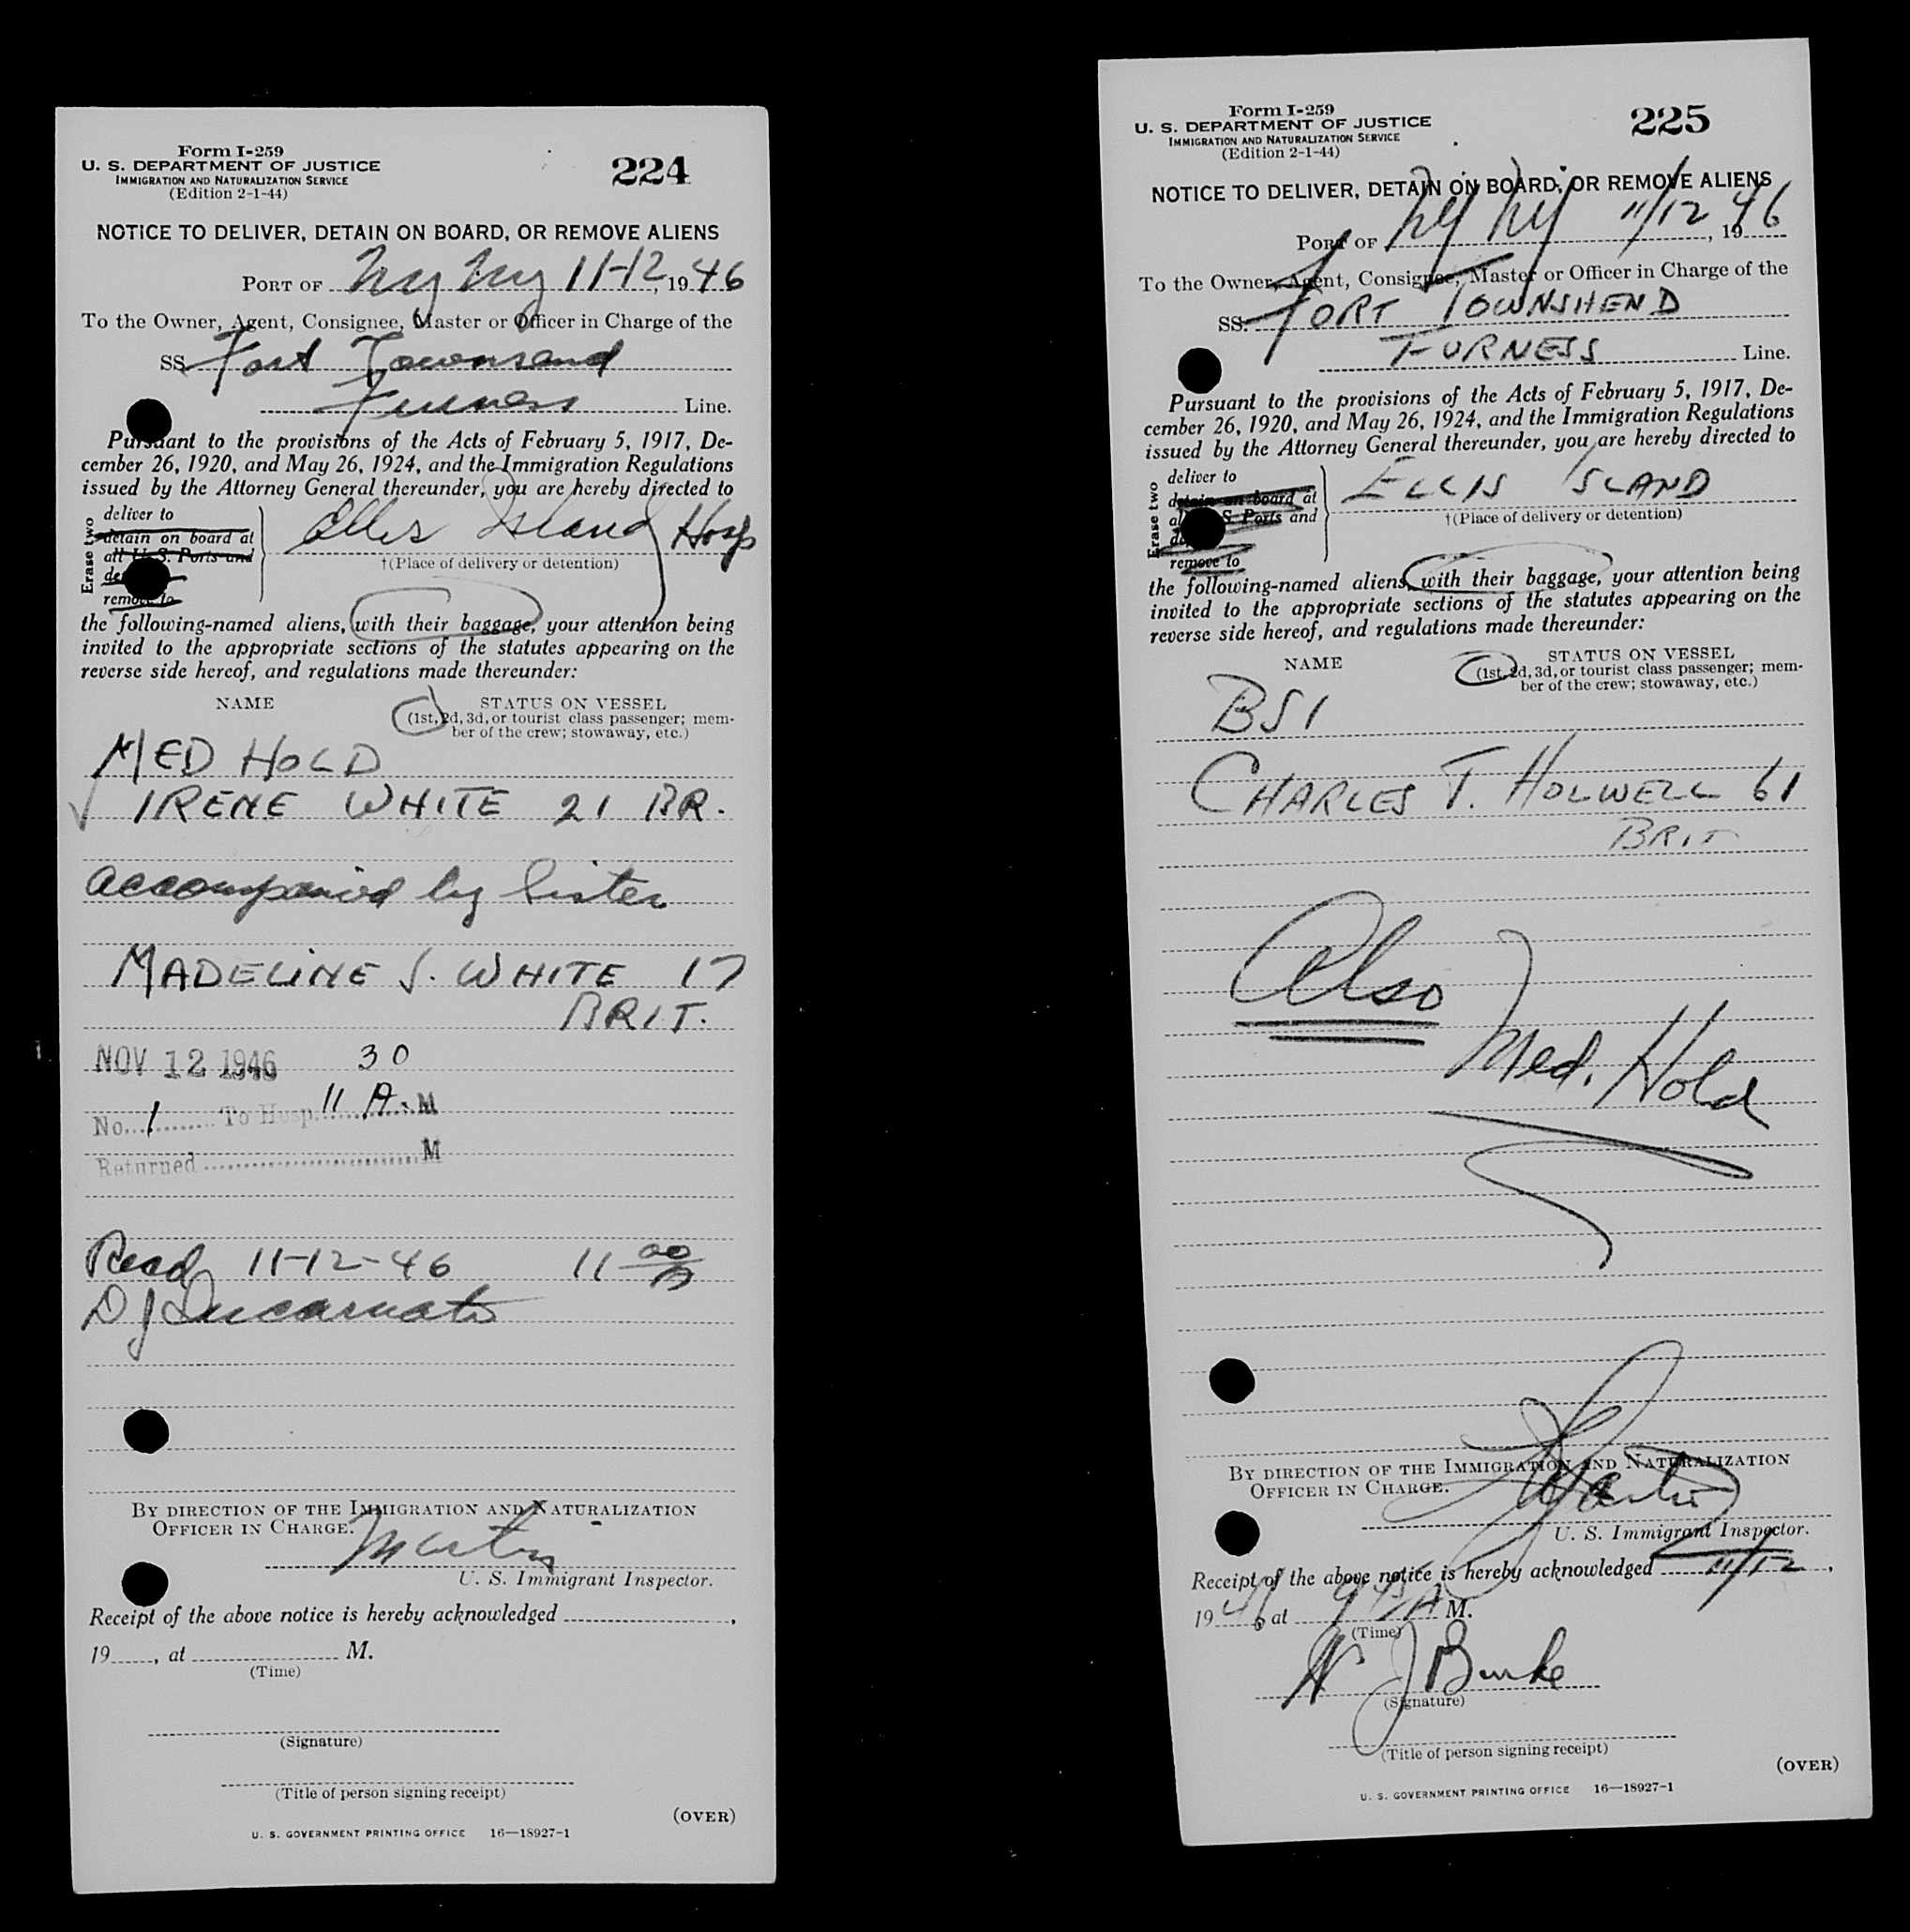 Form I-259
U. S. DEPARTMENT OF JUSTICE
IMMIGRATION AND NATURALIZATION SERVICE
(Edition 2-1-44)
224
NOTICE TO DELIVER, DETAIN ON BOARD, OR REMOVE ALIENS
PORT OF NY NY 11-12, 1946
To the Owner, Agent, Consignee, Master or Officer in Charge of the
SS Fort Townsend
Furness Line.
Pursuant to the provisions of the Acts of February 5, 1917, De-
cember 26, 1920, and May 26, 1924, and the Immigration Regulations
issued by the Attorney General thereunder, you are hereby directed to
Erase two
deliver to
detain on board at
all U. S. Ports and
remove to
Ellis Island Hosp
†(Place of delivery or detention)
the following-named aliens, with their baggage, your attention being
invited to the appropriate sections of the statutes appearing on the
reverse side hereof, and regulations made thereunder:
NAME
STATUS ON VESSEL
(1st, 2d, 3d, or tourist class passenger; mem-
ber of the crew; stowaway, etc.)
MED HOLD
✓ IRENE WHITE 21 BR.
accompanied by Sister
MADELINE S. WHITE 17
BRIT.
NOV 12 1946 30
No. 1 To Hosp. 11 A. M
Returned M
Recd 11-12-46 11 00 A
D J Incarnato
BY DIRECTION OF THE IMMIGRATION AND NATURALIZATION
OFFICER IN CHARGE.
Martin
U. S. Immigrant Inspector.
Receipt of the above notice is hereby acknowledged ,
19 , at M.
(Time)
(Signature)
(Title of person signing receipt)
(OVER)
U. S. GOVERNMENT PRINTING OFFICE 16—18927-1
Form I-259
U. S. DEPARTMENT OF JUSTICE
IMMIGRATION AND NATURALIZATION SERVICE
(Edition 2-1-44)
225
NOTICE TO DELIVER, DETAIN ON BOARD, OR REMOVE ALIENS
PORT OF NY NY 11/12, 1946
To the Owner, Agent, Consignee, Master or Officer in Charge of the
SS. FORT TOWNSHEND
FURNESS Line.
Pursuant to the provisions of the Acts of February 5, 1917, De-
cember 26, 1920, and May 26, 1924, and the Immigration Regulations
issued by the Attorney General thereunder, you are hereby directed to
Erase two
deliver to
detain on board at
all U. S. Ports and
remove to
ELLIS ISLAND
†(Place of delivery or detention)
the following-named aliens, with their baggage, your attention being
invited to the appropriate sections of the statutes appearing on the
reverse side hereof, and regulations made thereunder:
NAME
STATUS ON VESSEL
(1st, 2d, 3d, or tourist class passenger; mem-
ber of the crew; stowaway, etc.)
BSI
CHARLES T. HOLWELL 61
BRIT
Also
Med. Hold
BY DIRECTION OF THE IMMIGRATION AND NATURALIZATION
OFFICER IN CHARGE.
Martin
U. S. Immigrant Inspector.
Receipt of the above notice is hereby acknowledged 11/12,
1946, at 9 45 A M.
(Time)
W J Burke
(Signature)
(Title of person signing receipt)
(OVER)
U. S. GOVERNMENT PRINTING OFFICE 16—18927-1